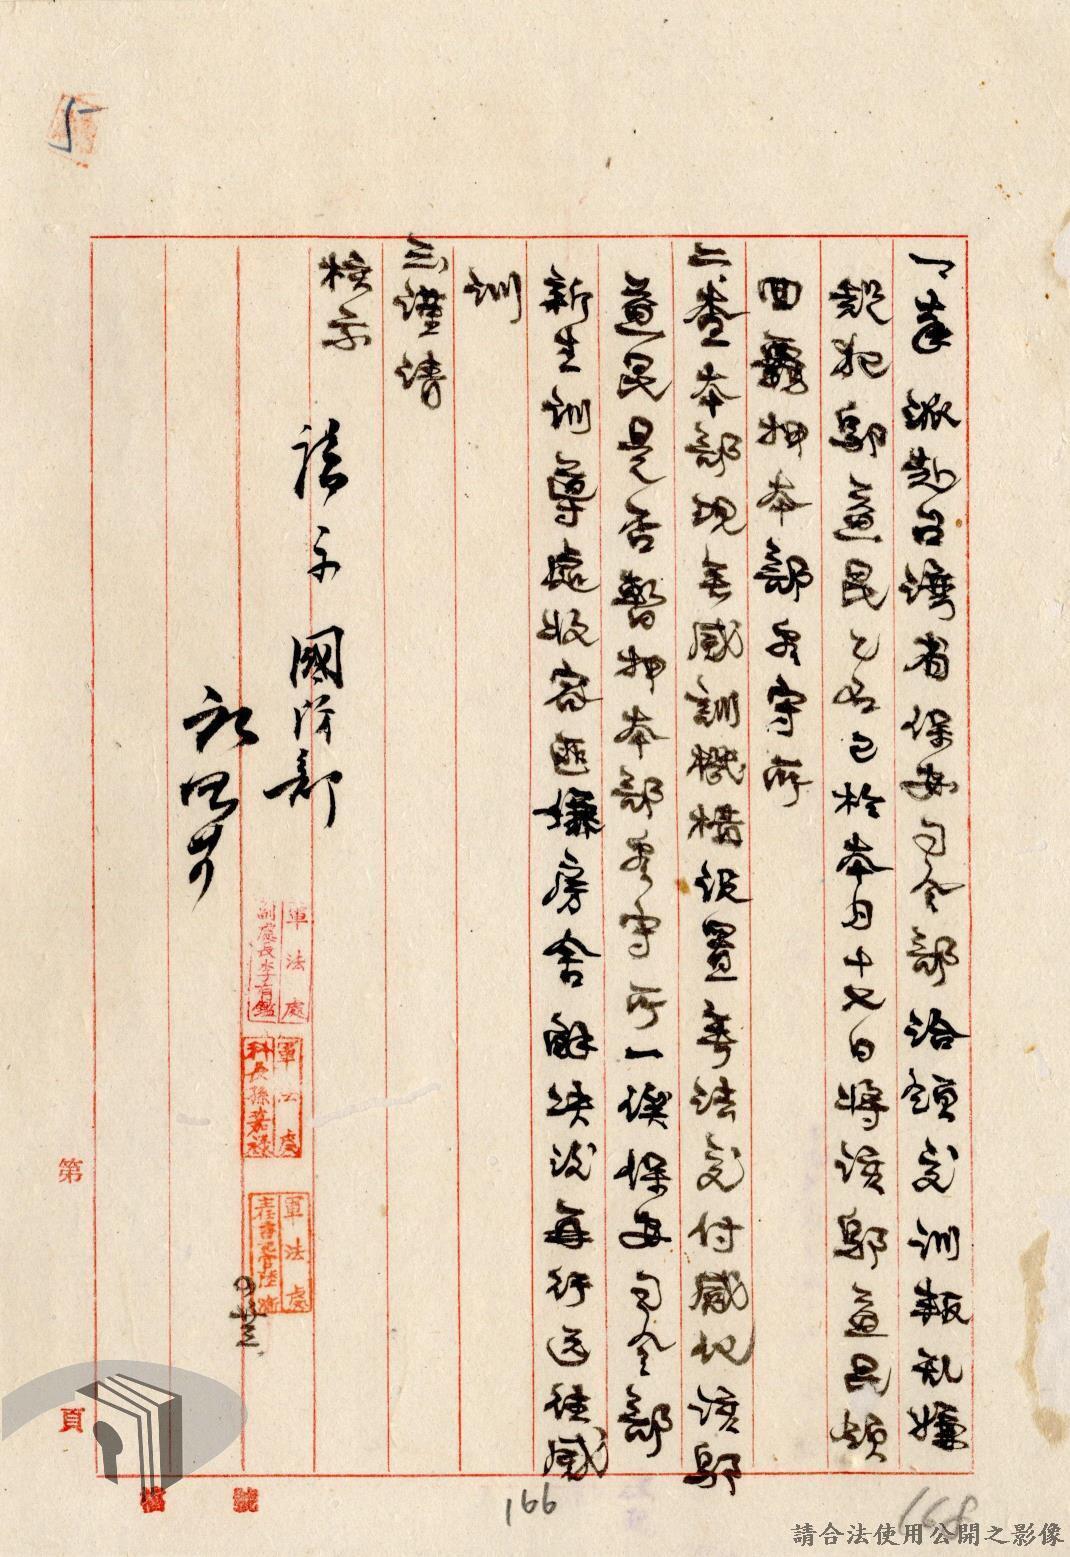 一、奉 派赴台灣省保安司令部洽領交訓叛乱嫌
疑犯鄔益昆乙名已於本月十七日將該鄔益昆領
回羈押本部看守所
二、查本部現無感訓機構設置無法交付感化該鄔
益昆是否暫押本部看守所一俟保安司令部
新生訓導處收容匪嫌房舍解決後再行送往感
訓
三、謹請
核示
請示 國防部
軍法處
副處長李有鑑
軍法處
科長孫嘉祿
軍法處
第 頁
166
168
請合法使用公開之影像